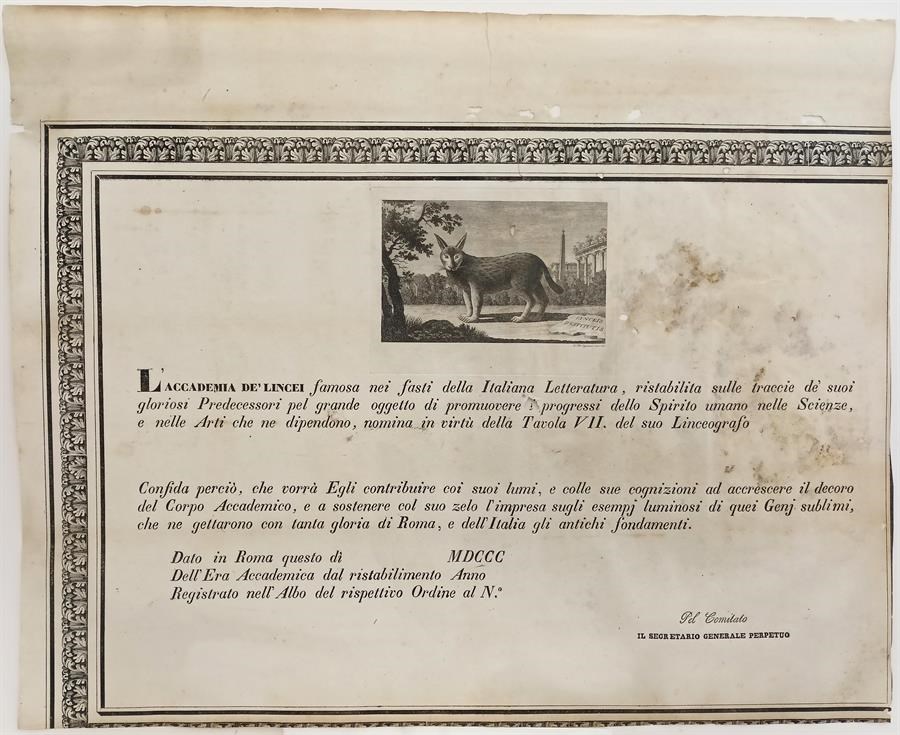 LYNCEIS
RESTITUTIS
L'ACCADEMIA DE' LINCEI famosa nei fasti della Italiana Letteratura, ristabilita sulle traccie de' suoi
gloriosi Predecessori pel grande oggetto di promuovere i progressi dello Spirito umano nelle Scienze,
e nelle Arti che ne dipendono, nomina in virtù della Tavola VII. del suo Linceografo
Confida perciò, che vorrà Egli contribuire coi suoi lumi, e colle sue cognizioni ad accrescere il decoro
del Corpo Accademico, e a sostenere col suo zelo l'impresa sugli esempj luminosi di quei Genj sublimi,
che ne gettarono con tanta gloria di Roma, e dell'Italia gli antichi fondamenti.
Dato in Roma questo dì MDCCC
Dell'Era Accademica dal ristabilimento Anno
Registrato nell'Albo del rispettivo Ordine al N.º
Pel Comitato
IL SEGRETARIO GENERALE PERPETUO